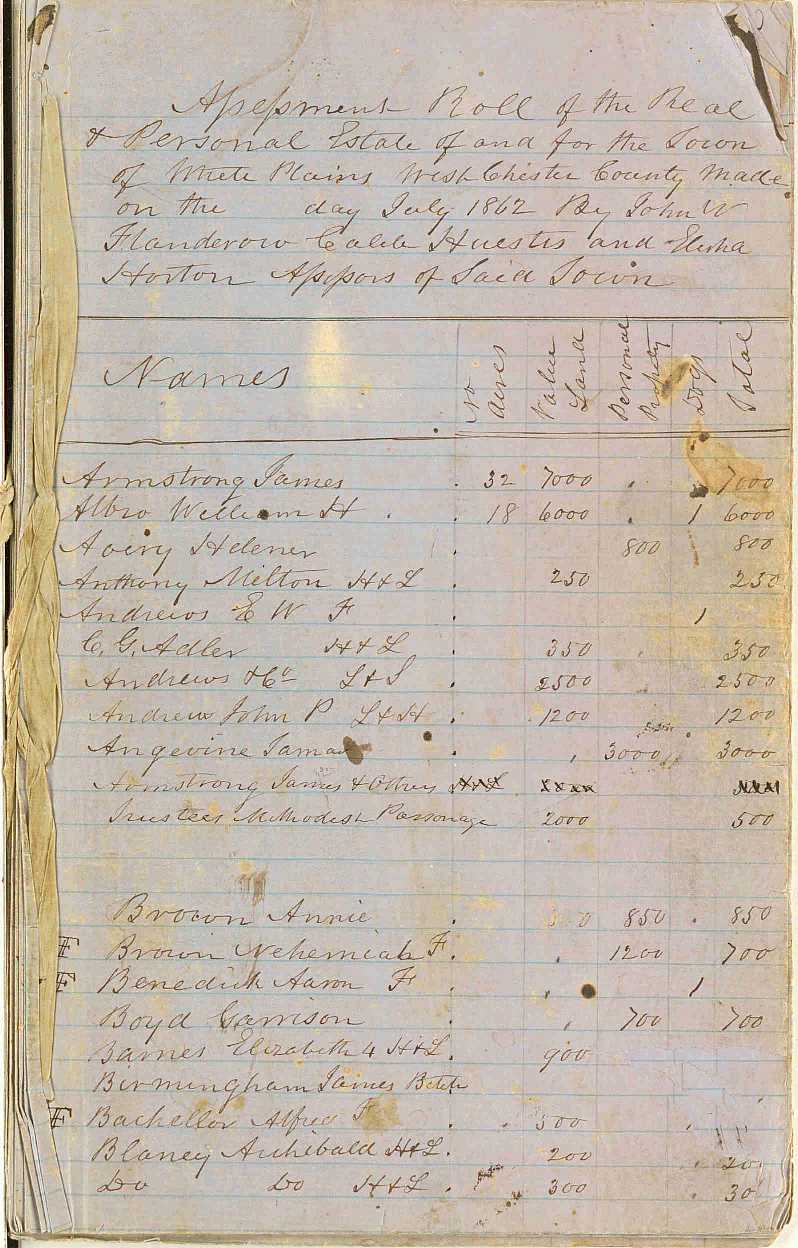 Assessment Roll of the Real
& Personal Estate of and for the Town
of White Plains West Chester County Made
on the day July 1862 By John W
Flanderow Caleb Huestis and Elisha
Horton Assessors of Said Town
Names No Acres Value Land Personal Property Dogs Total
Armstrong James . 32 7000 . . 7000
Albro William H . . 18 6000 . 1 6000
Avery Hdener . 800 800
Anthony Milton H & L . 250 250
Andrews E W F . 1
C. G. Adler H & L . 350 350
Andrews & Co L & S . 2500 2500
Andrews John P L & H . 1200 1200
Angevine . , 3000 3000
Armstrong James & Others
Trustees Methodist Parsonage 2000 500
Brown Annie . 850 . 850
F Brown Nehemiah F. . 1200 700
F Benedick Aaron F . , 1
Boyd Garrison . , 700 700
Barnes Elizabeth 4 H & L. 900
Birmingham James
F Bachellor Alfred F . . 500 .
Blaney Archibald H & L. 200 20
Do Do H & L . 300 30